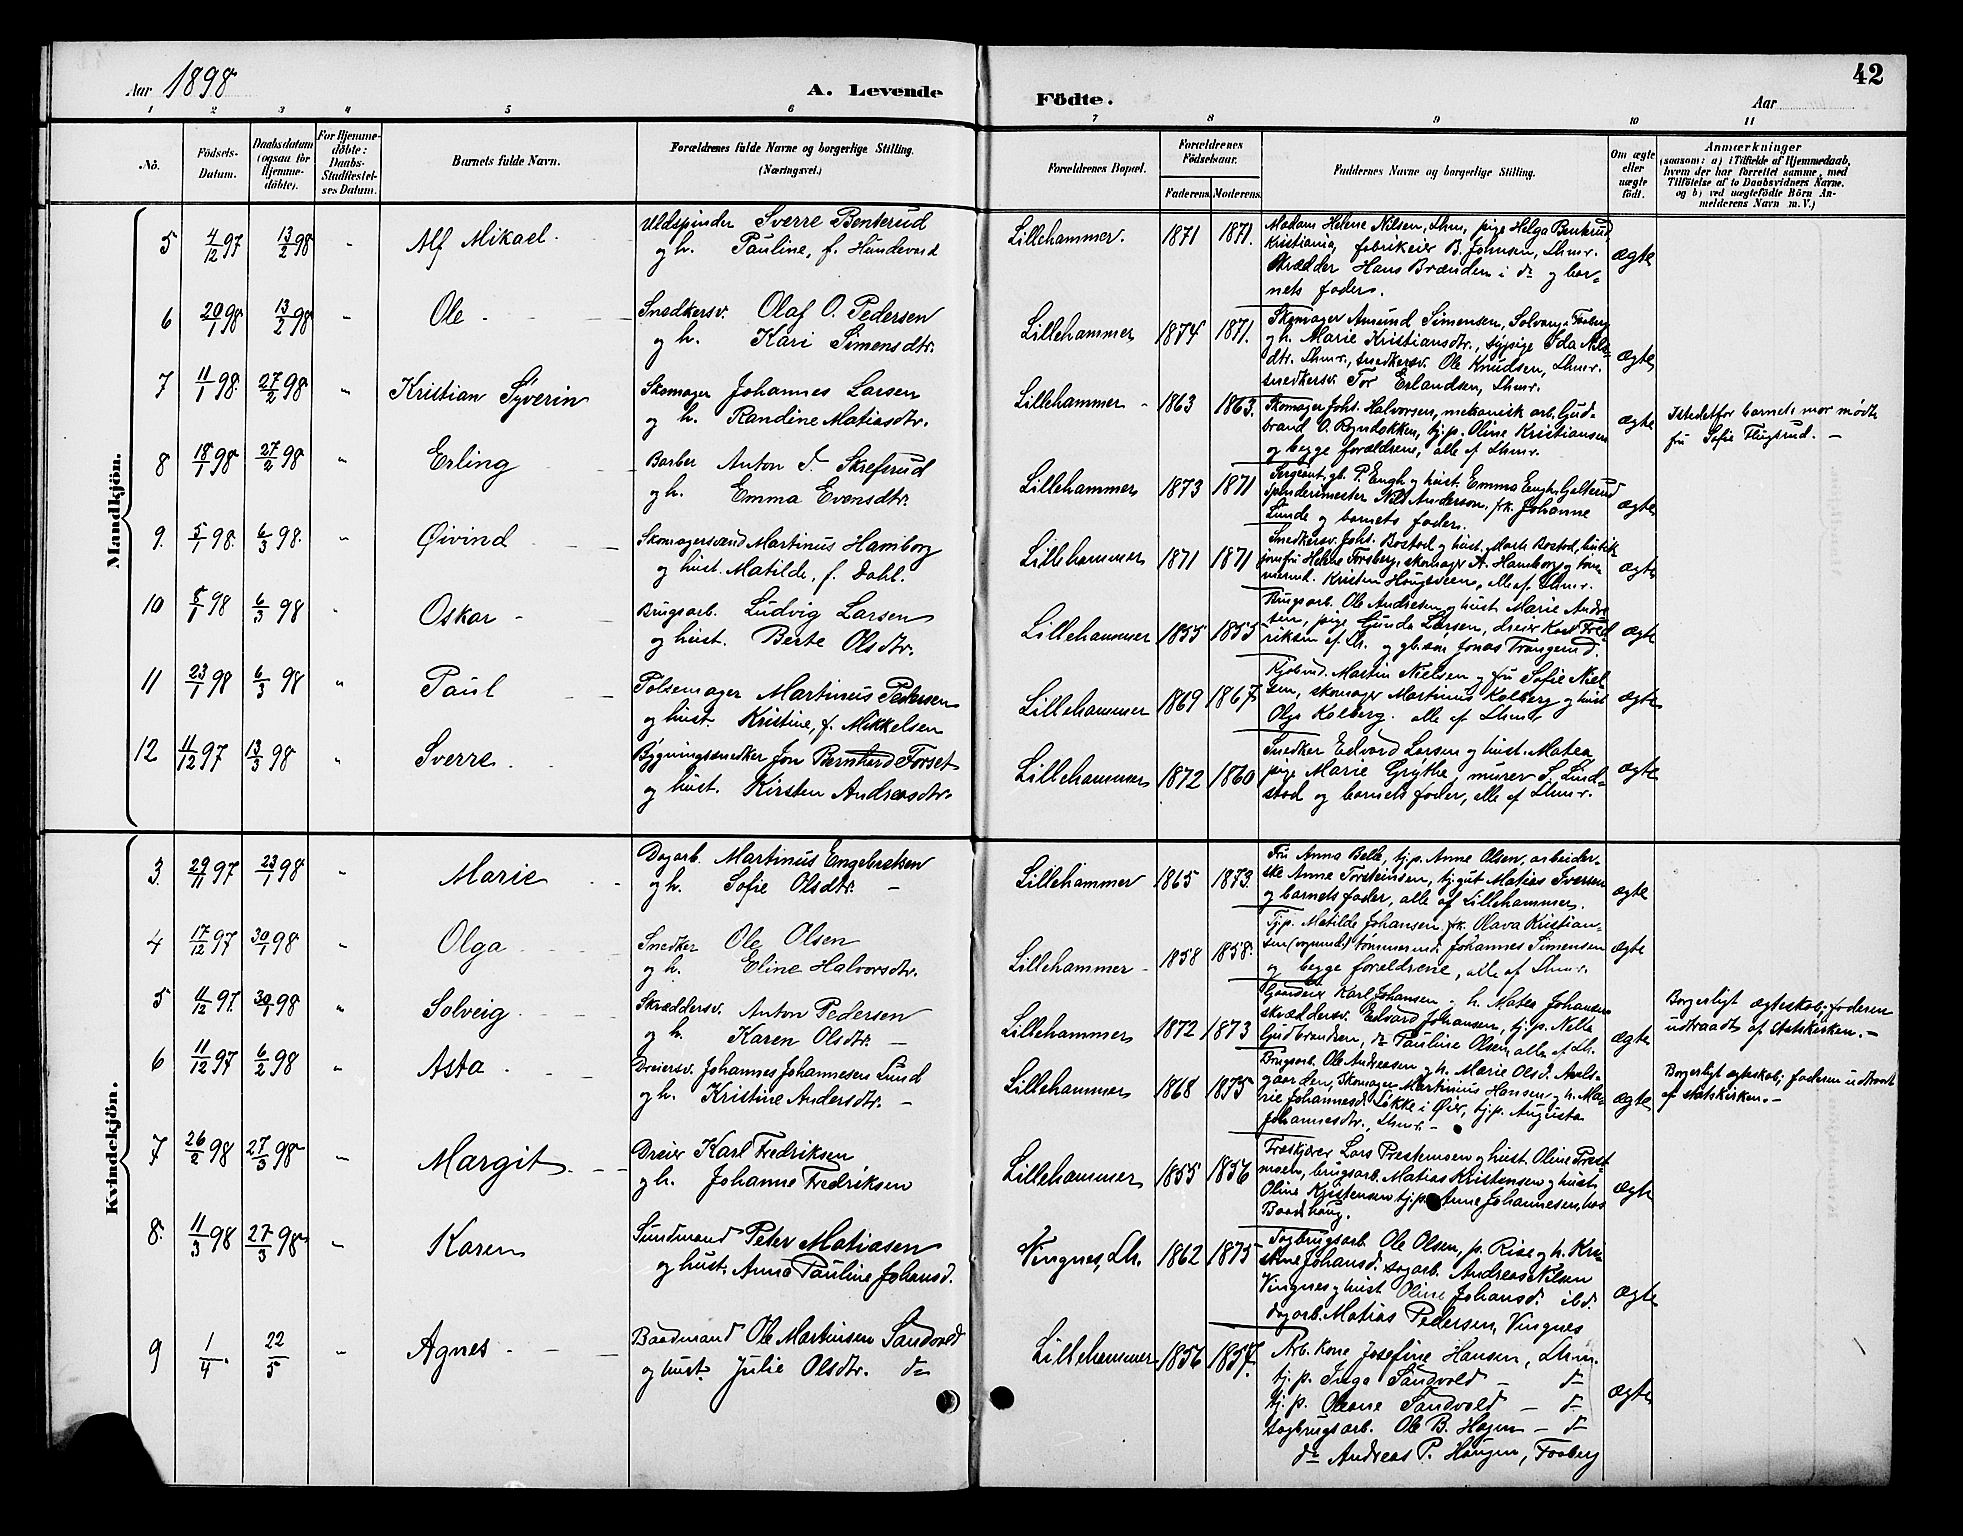 Aar 1898
A. Levende
Födte.
Aar
42
1 2 3 4 5 6 7 8 9 10 11
No.
Födsels-
Datum.
Daabsdatum
(ogsaa for
Hjemme-
döbte).
For Hjemme-
döbte:
Daabs-
Stadfæstel-
ses Datum.
Barnets fulde Navn.
Forældrenes fulde Navne og borgerlige Stilling.
(Næringsvei.)
Forældrenes Bopæl.
Forældrenes
Födselsaar.
Faderens. Moderens.
Faddernes Navne og borgerlige Stilling.
Om ægte
eller
uægte
født.
Anmærkninger
(saasom: a) i Tilfælde af Hjemmedaab,
hvem der har forrettet samme, med
Tilföielse af to Daabsvidners Navne.
og b) ved uægtefødte Börn An-
melderens Navn m. V.)
Mandkjön.
5 4/12 97 13/2 98 " Alf Mikael
Uldspinder Sverre Benterud
og h. Pauline, f. Hundevad
Lillehammer. 1871 1871.
Madam Helene Nilsen, Lhm, pige Helga Benterud
Kristiania, fabrikeier B. Johnsen, Lhmr.
Skrædder Hans Brænden i do og bar-
nets fader.
ægte
6 20/1 98 13/2 98 " Ole
Snedkersv. Olaf O. Pedersen
og h. Kari Simensdtr.
Lillehammer 1874 1871.
Skomager Amund Simensen, Solvang i Faaberg
og h. Marie Kristiansdtr., sypige Ida Nils-
dtr. Lhmr., snedkersv. Ole Knudsen, Lhmr.
snedkersv. Tor Erlandsen, Lhmr.
ægte
7 11/1 98. 27/2 98 " Kristian Syverin
Skomager Johannes Larsen
og h. Randine Matiasdtr.
Lillehammer - 1863 1863.
Skomager Johs. Halvorsen, mekanisk arb. Gud-
brand O. tj.p. Oline Kristiansen
og begge forældrene, alle af Lhmr.
ægte
Istedetfor barnets mor mødte
fru Sofie Flugsrud. -
8 18/1 98 27/2 98 " Erling
Barber Anton J. Skrefsrud
og h. Emma Evensdtr.
Lillehammer 1873 1871
Sergeant, gb. P. Engh og hust. Emma Engh, Galterud
Spinderimester Nils Anderson, frk. Johanne
Lunde og barnets fader.
ægte
9. 5/1 98. 6/3 98. " Øivind
Skomagersvend Martinus Hamborg
og hust. Matilde, f. Dahl.
Lillehammer 1871 1871
Snedkersv. Johs. Bostad og hust. Marte Bostad, butik-
jomfru Helene Forsberg, skomager A. Hamborg og tøm-
mermd. Kristen Haugsveen, alle af Lhmr.
ægte
10 5/1 98 6/3 98 " Oskar
Brugsarb. Ludvig Larsen
og hust. Berte Olsdtr.
Lillehammer 1855 1855
Brugsarb. Ole Andresen og hust. Marie Andre-
sen, pige Gunda Larsen, dreier Karl Fred-
riksen af Lh. og gb.søn Jonas Trangsrud.
ægte
11 23/1 98 6/3 98 " Paul
Pølsemager Martinius Pedersen
og hust. Kristine, f. Mikkelsen
Lillehammer 1869 1867.
Kjøbmd. Martin Nielsen og fru Sofie Niel-
sen, skomager Martinus Kolberg og hust
Olga Kolberg. alle af Lhmr.
ægte
12 11/12 97 13/3 98 " Sverre
Bygningssnedker Jon Bernhard Forset
og hust. Kirsten Andreasdtr.
Lillehammer 1872 1860
Snedker Edvard Larsen og hust. Matea
pige Marie Grythe, murer S. Lind-
stad og barnets fader, alle af Lhmr.
ægte
Kvindekjön.
3. 29/11 97 23/1 98 " Marie
Dagarb. Martinus Engebretsen
og h. Sofie Olsdtr. -
Lillehammer 1865 1873.
Fru Anna Belle, tj.p. Anne Olsen, arbeider-
ske Anne Torsteinsen, tj.gut Matias Iversen
og barnets fader, alle af Lillehammer.
ægte
4 17/12 97 30/1 98 " Olga
Snedker Ole Olsen
og h. Eline Halvorsdtr.
Lillehammer - 1858 1858.
Tjp. Matilde Johansen, frk. Olava Kristian-
sen tømmermd. Johannes Simensen
og begge forældrene, alle af Lhmr.
ægte
5 11/12 97. 30/1 98 " Solveig
Skræddersv. Anton Pedersen
og h. Karen Olsdtr. -
Lillehammer 1872 1873
Gaardeier Karl Johansen og h. Matea Johansen
skræddersv. Edvard Johansen, tj.p. Nella
Gudbrandsen, do Pauline Olsen, alle af Lh.
ægte
Borgerligt ægteskab; faderen
udtraadt af statskirken. -
6 11/12 97 6/2 98 " Asta
Dreiersv. Johannes Johannesen Lund
og h. Kristine Andersdtr. -
Lillehammer 1868 1875
Brugsarb. Ole Andreasen og h. Marie Olsd. Avls-
gaarden, Skomager Martinius Hansen og h. Ma-
rie Johannesd. Løkke i Øier, tj.p. Augusta
Johannesdtr., Lhmr. -
ægte
Borgerligt ægteskab; faderen udtraadt
af statskirken. -
7 26/2 98 27/3 98 " Margit
Dreier Karl Fredriksen
og h. Johanne Fredriksen
Lillehammer 1855 1856
Træskjærer Lars Prestmoen og hust. Oline Prest-
moen, brugsarb. Matias Kristensen og hust.
Oline Kristensen tj.p. Anne Johannesen, hos
Baadhaug.
ægte
8. 11/3 98 27/3 98 " Karen
Sundmand Peter Matiasen
og hust. Anna Pauline Johansd.
Vingnes, Lh. 1862 1875
Sagbrugsarb. Ole Olsen, p. Rise og h. Kri-
stine Johansd. sagarb. Andreas Nilsen
Vingnes og hust Oline Johansd. ibd.
dagarb. Matias Pedersen, Vingnes
ægte
9 1/4. 22/5 " Agnes
Baadmand Ole Martinsen Sandvold
og hust. Julie Olsdtr. do
Lillehammer 1856 1857.
Arb. Kone Josefine Hansen, Lhm.
tj.p. Inga Sandvold - do
tj.p. Oleane Sandvold - do
sagbrugsarb. Ole B. Hagen - do
do Andreas P. Haugen, Faaberg
ægte